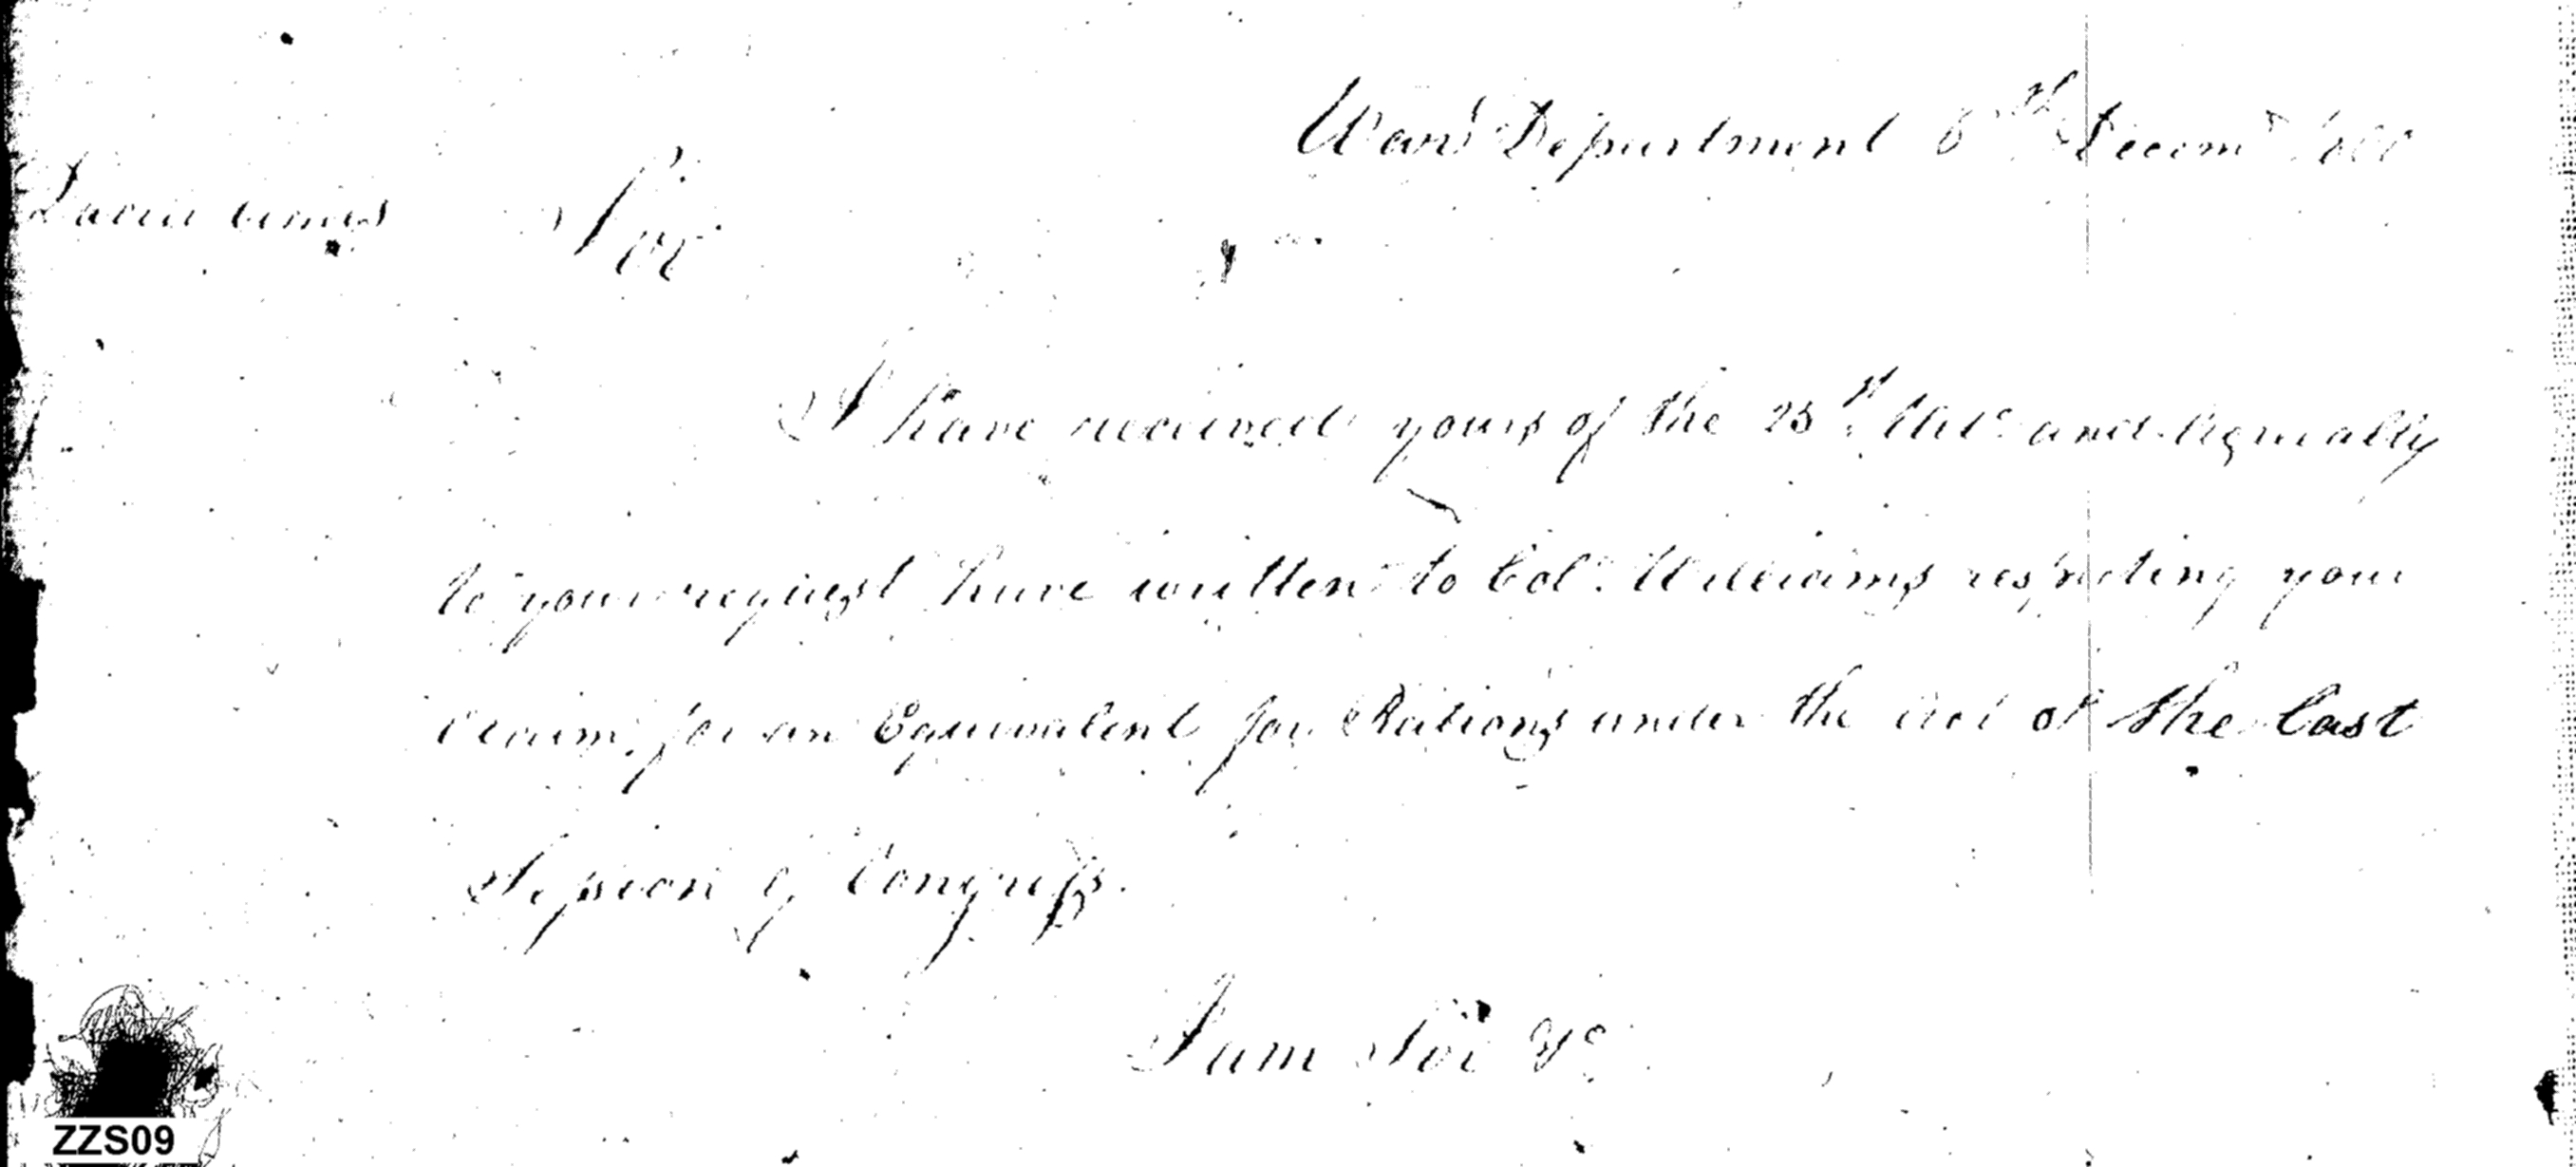 War Department 6th Decemr
David
Sir
I have received yours of the 25th Ulto and Agreeably
to your request have written to Colo. Williams respecting your
Claim for an Equivalent for Rations under the act of the last
Session of Congress.
I am Sir &c
ZZS09